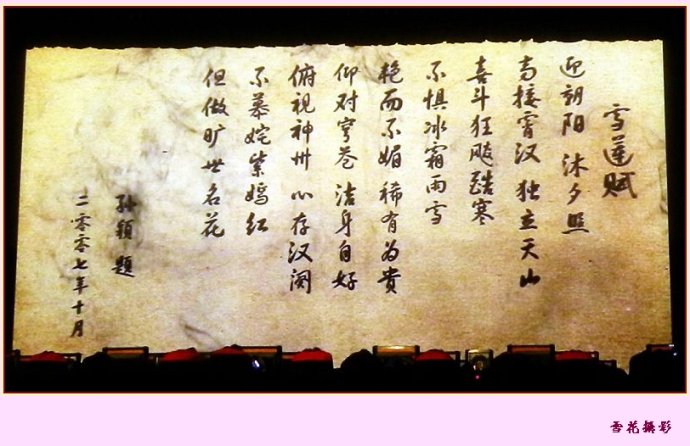 雪莲赋
迎朝阳 沐夕照
高接霄汉 独立天山
喜斗狂飚酷寒
不惧冰霜雨雪
艳而不媚 稀有为贵
仰对穹苍 洁身自好
俯视神州 心存汉阙
不慕姹紫嫣红
但做旷世名花
孙颖 题
二零零七年十月
雪花摄影